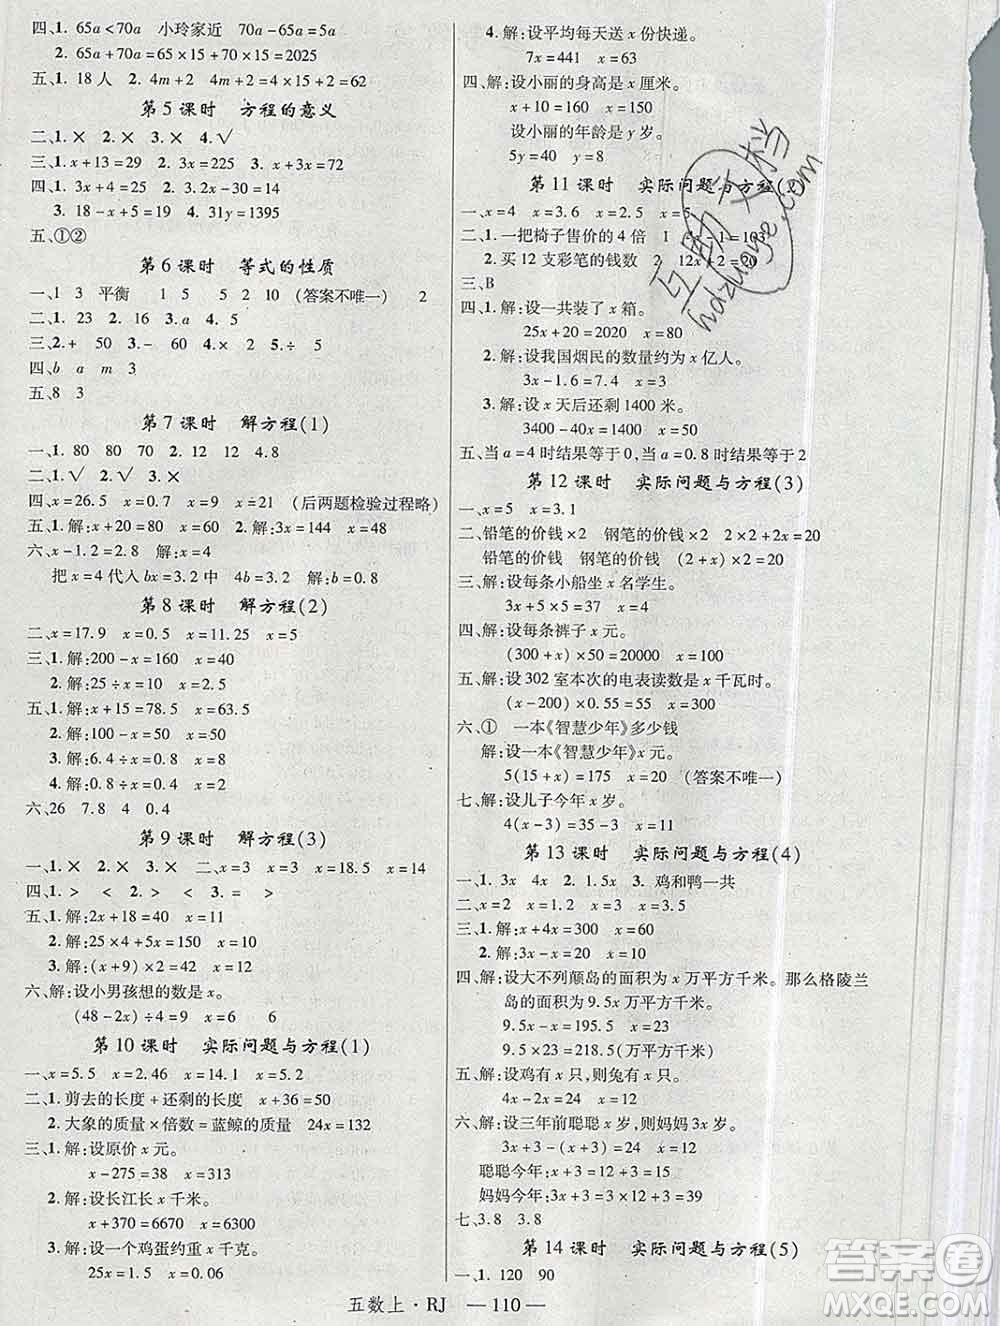 四、1. 65a<70a 小玲家近 70a-65a=5a
2. 65a+70a=65×15+70×15=2025
五、1. 18人 2. 4m+2 4m+2=4×15+2=62
第5课时 方程的意义
二、1.× 2.× 3.× 4.√
三、1. x+13=29 2. 3x=225 3. x+3x=72
四、1. 3x+4=25 2. 2x-30=14
3. 18-x=5 4. 31y=1395
五、①②
第6课时 等式的性质
一、1 3 平衡 1 5 5 2 10 (答案不唯一) 2
二、1. 23 2. 16 3. 2 4. 8
三、2.+ 50 3.- 60 4.× 6 5.÷ 5
四、b a m 3
五、8 3
第7课时 解方程(1)
一、1. 80 80 70 2. 12 12 4.8
二、1.√ 2.√ 3.×
四、x=26.5 x=0.7 x=9 x=21 (后两题检验过程略)
五、1.解:x+20=80 x=60 2.解:3x=144 x=48
六、x-1.2=2.8 解:x=4
把x=4代入bx=3.2中 4b=3.2 解:b=0.8
第8课时 解方程(2)
二、x=17.9 x=0.5 x=11.25 x=5
三、1.解:200-x=160 x=40
2.解:25÷x=10 x=2.5
五、1.解:x+15=78.5 x=63.5
2.解:100-x=50 x=50
3.解:6.4÷x=0.8 x=8
4.解:0.8÷x=0.4 x=2
六、26 7.8 4 0.4
第9课时 解方程(3)
一、1.× 2.× 3.× 二、x=3 x=3 x=18.5 x=14
四、1.> < 2.> < 3.= >
五、1.解:2x+18=40 x=11
2.解:25×4+5x=150 x=10
3.解:(x+9)×2=42 x=12
六、解:设小男孩想的数是x。
(48-2x)÷4=9 x=6 6
第10课时 实际问题与方程(1)
一、x=5.5 x=2.46 x=14 x=5.2
二、1.剪去的长度+还剩的长度 x+36=50
2.大象的质量×倍数=蓝鲸的质量 24x=132
三、1.解:设原价x元。
x-275=38 x=313
2.解:设长江长x千米。
x+370=6670 x=6300
3.解:设一个鸡蛋约重x千克。
25x=1.5 x=0.06
4.解:设平均每天送x份快递。
7x=441 x=63
四、解:设小丽的身高是x厘米。
x+10=160 x=150
设小丽的年龄是y岁。
5y=40 y=8
第11课时 实际问题与方程(2)
一、x=4 x=3.6 x=2.5 x=5
二、1.一把椅子售价的4倍 1
2.买12支彩笔的钱数 2 12x+2=20
三、B
四、1.解:设一共装了x箱。
25x+20=2020 x=80
2.解:设我国烟民的数量约为x亿人。
3x-1.6=7.4 x=3
3.解:设x天后还剩1400米。
3400-40x=1400 x=50
五、当a=4时结果等于0,当a=0.8时结果等于2
第12课时 实际问题与方程(3)
一、x=5 x=3.1
二、铅笔的价钱×2 钢笔的价钱×2 2×2+2x=20
铅笔的价钱 钢笔的价钱 (2+x)×2=20
三、解:设每条小船坐x名学生。
3x+5×6=48 x=6
四、解:设每条裤子x元。
(300+x)×50=20000 x=100
五、解:设302室本次的电表读数是x千瓦时。
(x-200)×0.55=55 x=300
六、① 一本《智慧少年》多少钱
解:设一本《智慧少年》x元。
5(15+x)=175 x=20 (答案不唯一)
七、解:设儿子今年x岁。
4(x-3)=35-3 x=11
第13课时 实际问题与方程(4)
一、1. 3x 4x 2. 1.5x 3.鸡和鸭一共
二、x=2 x=3 x=2 x=3.5
三、1.解:x+4x=300 x=60
2.解:3x-x=20 x=10
四、解:设大不列颠岛的面积为x万平方千米。那么格陵兰
岛的面积为9.5x万平方千米。
9.5x-x=195.5 x=23
9.5x=9.5×23=218.5(万平方千米)
五、解:设鸡有x只,则兔有x只。
4x-2x=24 x=12
六、解:设三年前聪聪x岁,则妈妈3x岁。
3x+3-(x+3)=24 x=12
聪聪今年:x+3=12+3=15
妈妈今年:3x+3=3×12+3=39
七、3.8 3.8
第14课时 实际问题与方程(5)
一、1. 120 90
五数上·RJ —110—
互助文档
hdzuoye.com
答案圈
MXQE.COM